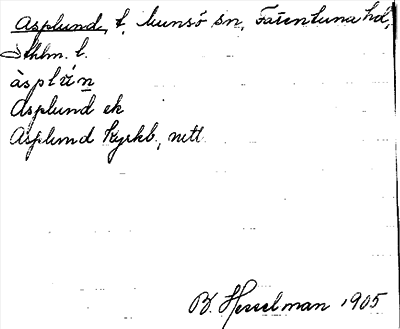 Asplund, t, Munsö sn, Färentuna hd,
Sthlm. l.
àsplún
Asplund ek
Asplund kyrkb, nett
B. Hesselman 1905